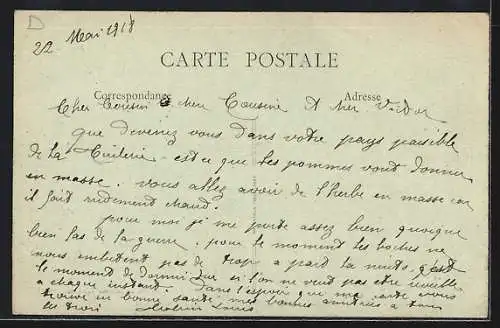 D
22 Mai 1918
CARTE POSTALE
Correspondance Adresse
Cher Cousin & cher Cousine et cher
que devenez vous dans votre pays paisible
de la Tuilerie. est ce que les pommes vont donner
en masse. vous allez avoir de l'herbe en masse car
il fait rudement chaud.
pour moi je me porte assez bien quoique
bien las de la guerre, pour le moment les boches ne
nous embêtent pas de trop a part la nuit, c'est
le moment de dormir que si l'on ne veut pas etre reveillé
a chaque instant. Dans l'espoir que ma carte vous
trouve en bonne santé, mes bonnes amitiés a tous
les trois Louis